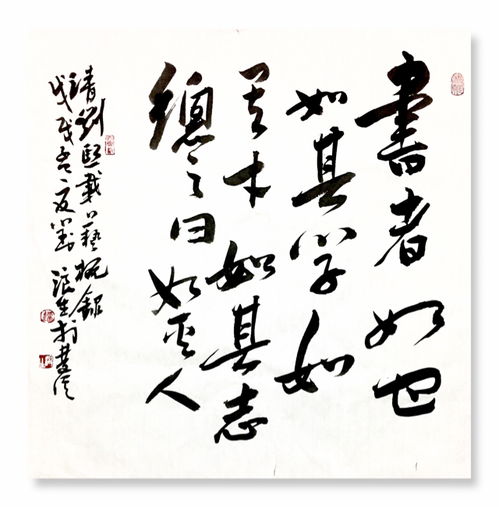 書者如也
如其学如
其才如其志
總之曰如其人
清劉熙載藝概錄
戊戌